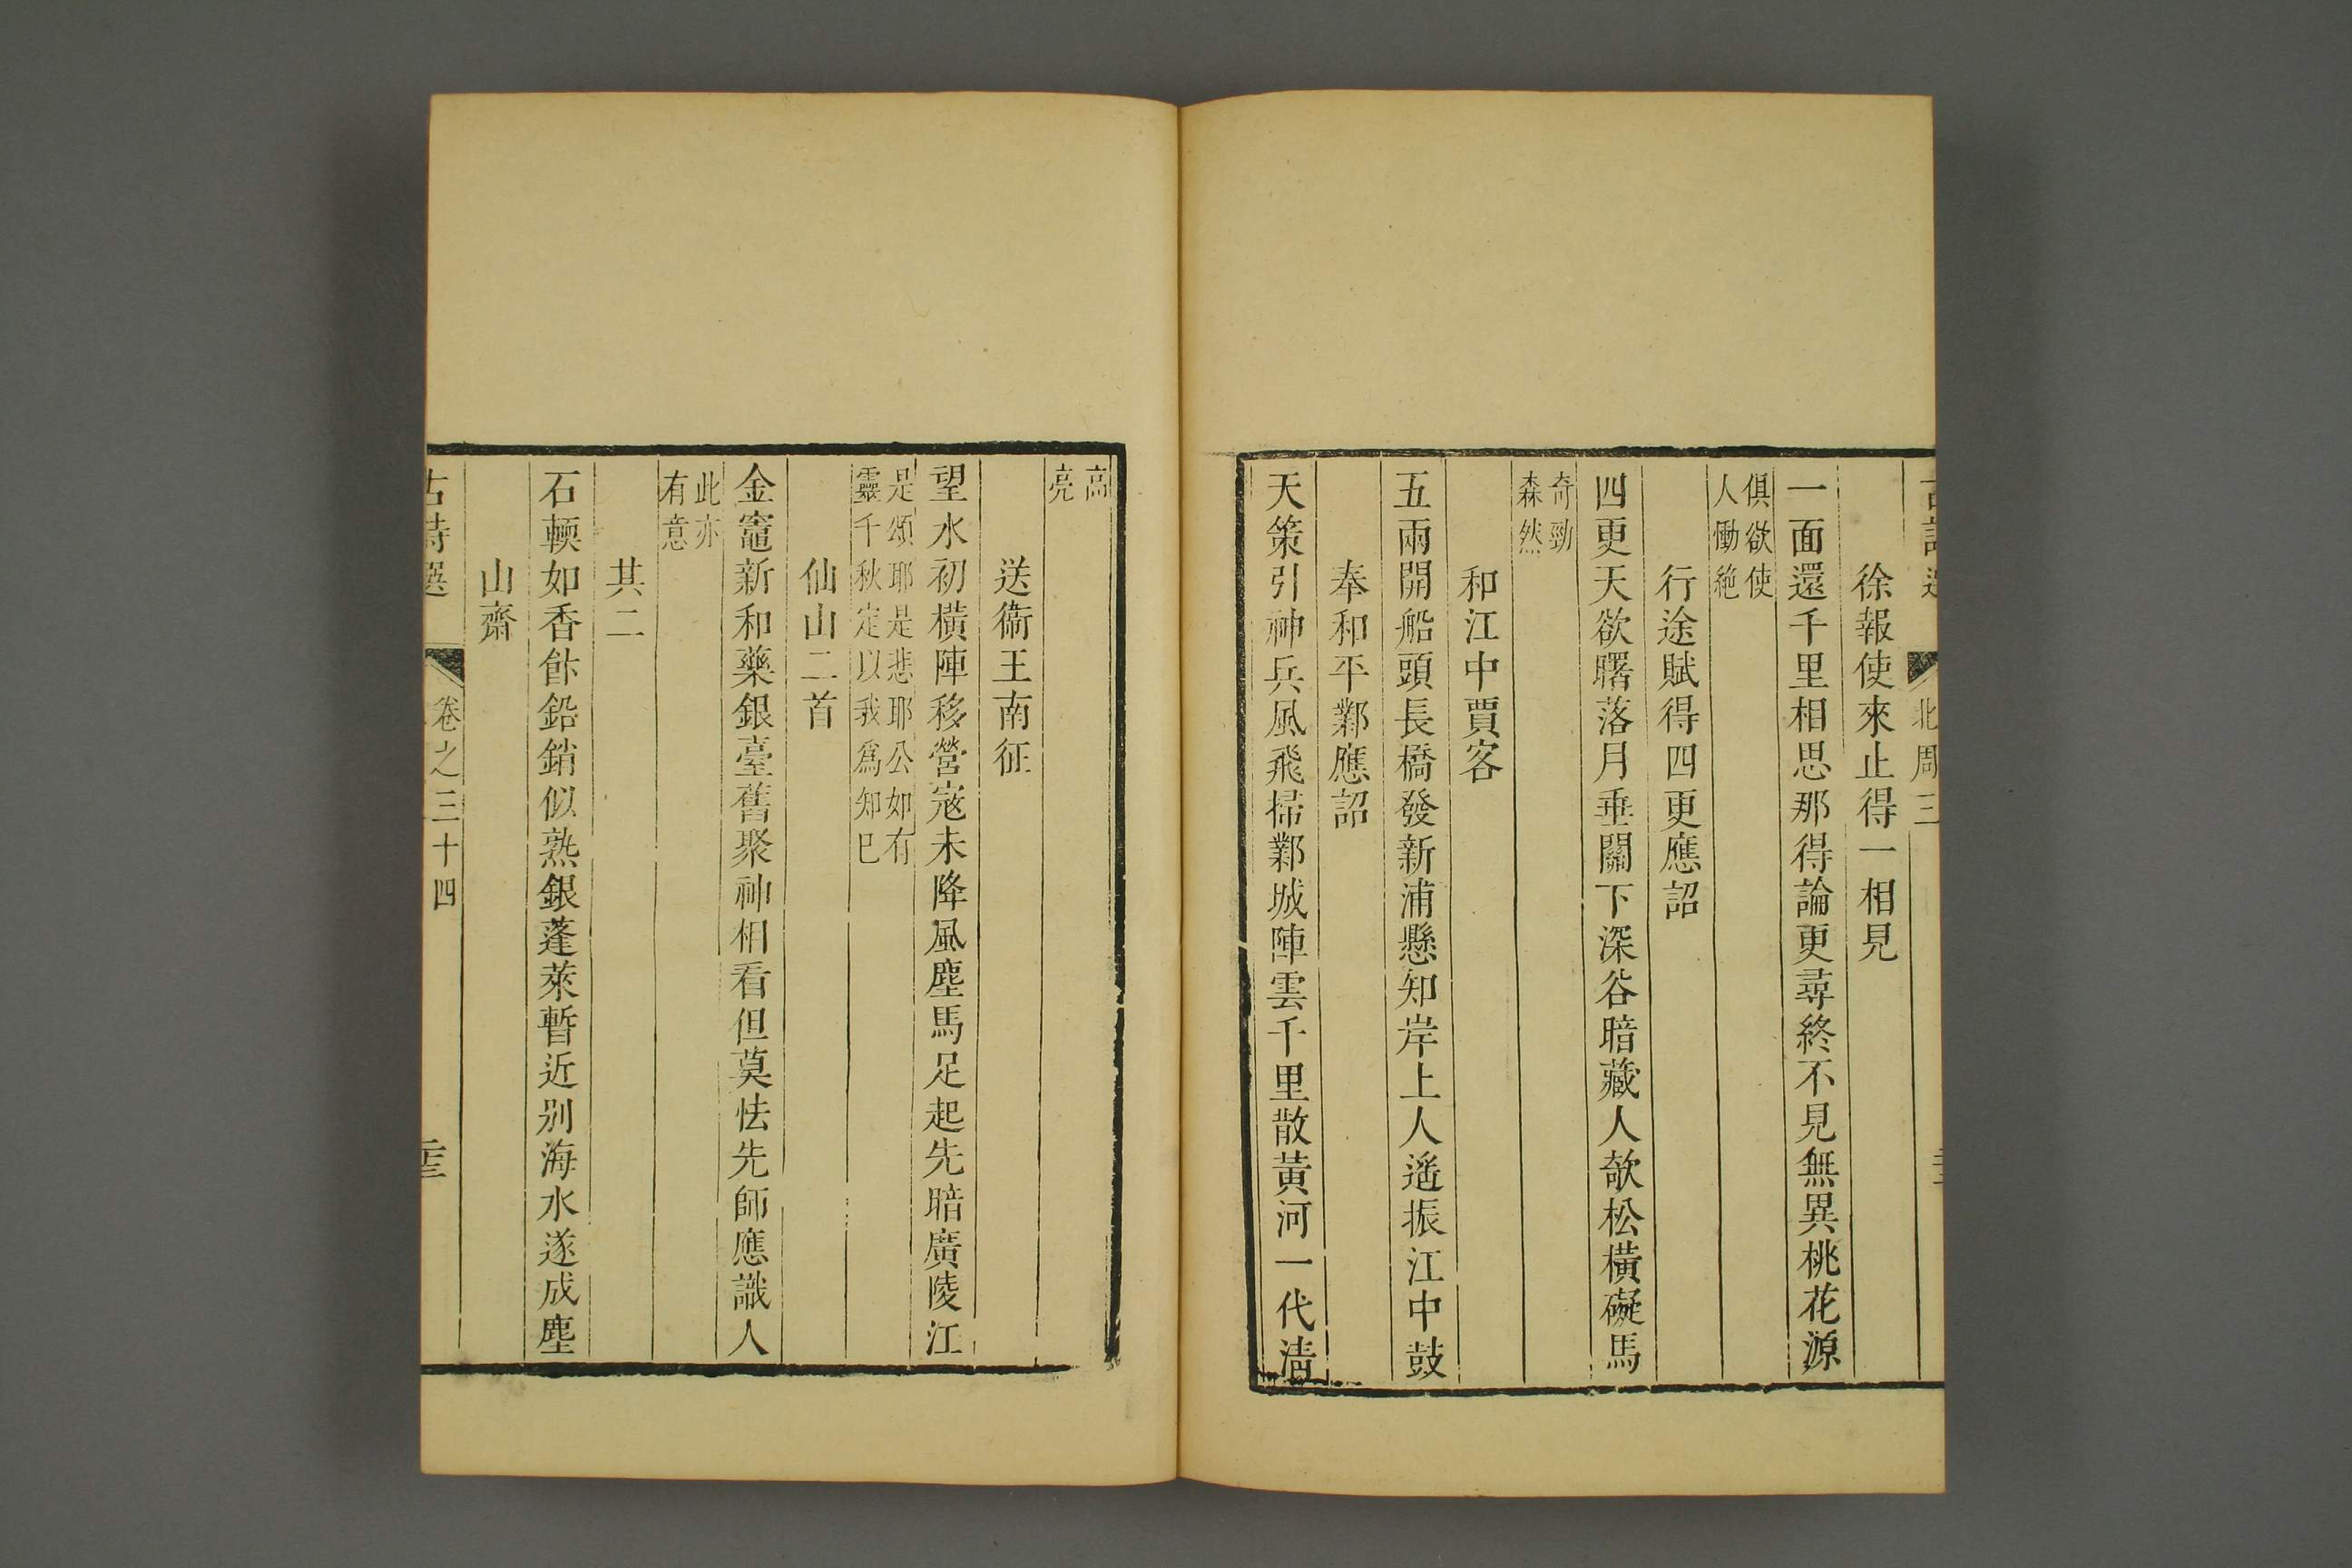 古詩選 北周三
徐報使來止得一相見
一面還千里相思那得論更尋終不見無異桃花源
俱欲使
人慟絶
行途賦得四更應詔
四更天欲曙落月垂關下深谷暗藏人欹松橫礙馬
奇勁
森然
和江中賈客
五兩開船頭長橋發新浦懸知岸上人遙振江中鼓
奉和平鄴應詔
天策引神兵風飛掃鄴城陣雲千里散黃河一代清
高
亮
送衞王南征
望水初橫陣移營寇未降風塵馬足起先暗廣陵江
是頌耶是悲耶公如有
靈千秋定以我爲知已
仙山二首
金竈新和藥銀臺舊聚神相看但莫怯先師應識人
此亦
有意
其二
石輭如香飰鉛銷似熟銀蓬萊暫近别海水遂成塵
山齋
古詩選 卷之三十四